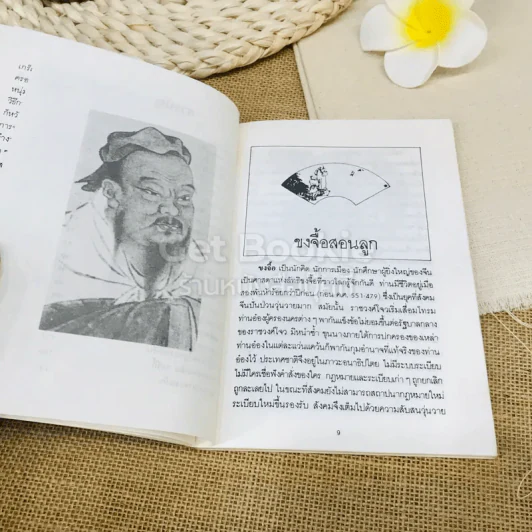 เกรี
ครอ
หนุ่ม
วิธีก
กัหวั
การา
ข้างว
Get Bookie
ขงจื้อสอนลูก
ขงจื้อ เป็นนักคิด นักการเมือง นักศึกษาผู้ยิ่งใหญ่ของจีน
เป็นศาสดาแห่งลัทธิขงจื้อที่ชาวโลกรู้จักกันดี ท่านมีชีวิตอยู่เมื่อ
สองพันห้าร้อยกว่าปีก่อน (ก่อน ค.ศ. 551-479) ซึ่งเป็นยุคที่สังคม
จีนปั่นป่วนวุ่นวายมาก สมัยนั้น ราชวงศ์โจวเริ่มเสื่อมโทรม
ท่านอ๋องผู้ครองนครต่าง ๆ พากันแข็งข้อไม่ยอมขึ้นต่อรัฐบาลกลาง
ของราชวงศ์โจว มิหนำซ้ำ ขุนนางภายใต้การปกครองของเหล่า
ท่านอ๋องในแต่ละแว่นแคว้นก็พากันกุมอำนาจที่แท้จริงของท่าน
อ๋องไว้ ประเทศชาติจึงอยู่ในภาวะอนาธิปไตย ไม่มีระบบระเบียบ
ไม่มีใครเชื่อฟังคำสั่งของใคร กฎหมายและระเบียบเก่า ๆ ถูกยกเลิก
ถูกละเลยไป ในขณะที่สังคมยังไม่สามารถสถาปนากฎหมายใหม่
ระเบียบใหม่ขึ้นรองรับ สังคมจึงเต็มไปด้วยความสับสนวุ่นวาย
9